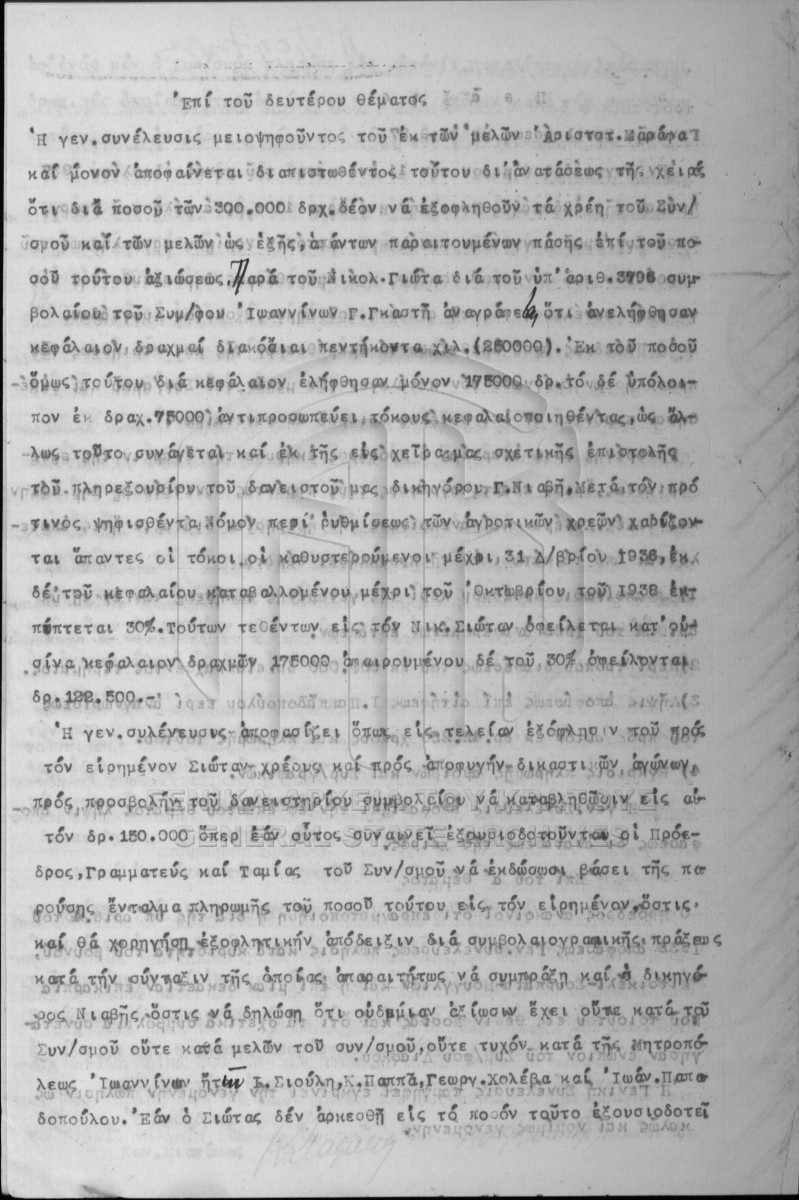 Ἐπί τοῦ δευτέρου θέματος
Ἡ γεν.συνέλευσις μειοψηφοῦντος τοῦ ἐκ τῶν μελῶν Ἀριστοτ.Μαράφα
καί μόνον ἀποφαίνεται διαπιστωθέντος τούτου δι'ἀνατάσεως τῆς χειρός
ὅτι διά ποσοῦ τῶν 300.000 δρχ.δέον νά ἐξοφληθοῦν τά χρέη τοῦ Συν/
σμοῦ καί τῶν μελῶν ὡς ἑξῆς,ἁπάντων παραιτουμένων πάσης ἐπί τοῦ πο-
σοῦ τούτου ἀξιώσεως.Παρά τοῦ Νικολ.Γιώτα διά τοῦ ὑπ'ἀριθ.3796 συμ-
βολαίου τοῦ Συμ/φου Ἰωαννίνων Γ.Γκαστῆ ἀναγράφει ὅτι ἀνελήφθησαν
κεφάλαιον δραχμαί διακόσιαι πεντήκοντα χιλ.(250000). Ἐκ τοῦ ποσοῦ
ὅμως τούτου διά κεφάλαιον ἐλήφθησαν μόνον 175000 δρ.τό δέ ὑπόλοι-
πον ἐκ δραχ.75000 ἀντιπροσωπεύει τόκους κεφαλαιοποιηθέντας,ὡς ἄλ-
λως τοῦτο συνάγεται καί ἐκ τῆς εἰς χεῖρα μας σχετικῆς ἐπιστολῆς
τοῦ πληρεξουσίου τοῦ δανειστοῦ μας δικηγόρου Γ.Νιαβῆ.Μετά τόν πρό
τινος ψηφισθέντα Νόμον περί ρυθμίσεως τῶν ἀγροτικῶν χρεῶν χαρίζον-
ται ἅπαντες οἱ τόκοι οἱ καθυστερούμενοι μέχρι 31 Δ/βρίου 1936,ἐκ
δέ τοῦ κεφαλαίου καταβαλλομένου μέχρι τοῦ Ὀκτωβρίου τοῦ 1938 ἐκ-
πίπτεται 30%.Τούτων τεθέντων εἰς τόν Νικ.Σιώταν ὀφείλεται κατ'οὐ-
σίνα κεφάλαιον δραχμῶν 175000 ἀπαιρουμένου δέ τοῦ 30% ὀφείλονται
δρ.122.500.-
Ἡ γεν.συλένευσις ἀποφασίζει ὅπως εἰς τελείαν ἐξόφλησιν τοῦ πρός
τόν εἰρημένον Σιώταν χρέους καί πρός ἀποφυγήν δικαστικῶν ἀγώνων
πρός προσβολήν τοῦ δανειστηρίου συμβολείου νά καταβληθῶσιν εἰς αὐ-
τόν δρ.150.000 ὅπερ ἐάν οὗτος συναινεῖ ἐξουσιοδοτοῦνται οἱ Πρόε-
δρος,Γραμματεύς καί Ταμίας τοῦ Συν/σμοῦ νά ἐκδώσωσι βάσει τῆς πα-
ρούσης ἔνταλμα πληρωμῆς τοῦ ποσοῦ τούτου εἰς τόν εἰρημένον,ὅστις
καί θά χορηγήση ἐξοφλητικήν ἀπόδειξιν διά συμβολαιογραφικῆς πράξεως
κατά τήν σύνταξιν τῆς ὁποίας ἀπαραιτήτως νά συμπράξη καί ὁ δικηγό-
ρος Νιαβῆς ὅστις νά δηλώση ὅτι οὐδεμίαν ἀξίωσιν ἔχει οὔτε κατά τοῦ
Συν/σμοῦ οὔτε κατά μελῶν τοῦ συν/σμοῦ,οὔτε τυχόν κατά τῆς Μητροπό-
λεως Ἰωαννίνων Σιούλη,Κ.Παππᾶ,Γεωργ.Χολέβα καί Ἰωάν.Παπα-
δοπούλου.Ἐάν ὁ Σιώτας δέν ἀρκεσθῆ εἰς τό ποσόν τοῦτο ἐξουσιοδοτεῖ
ΓΕΝΙΚΑ ΑΡΧΕΙΑ ΤΟΥ ΚΡΑΤΟΥΣ
GENERAL STATE ARCHIVES